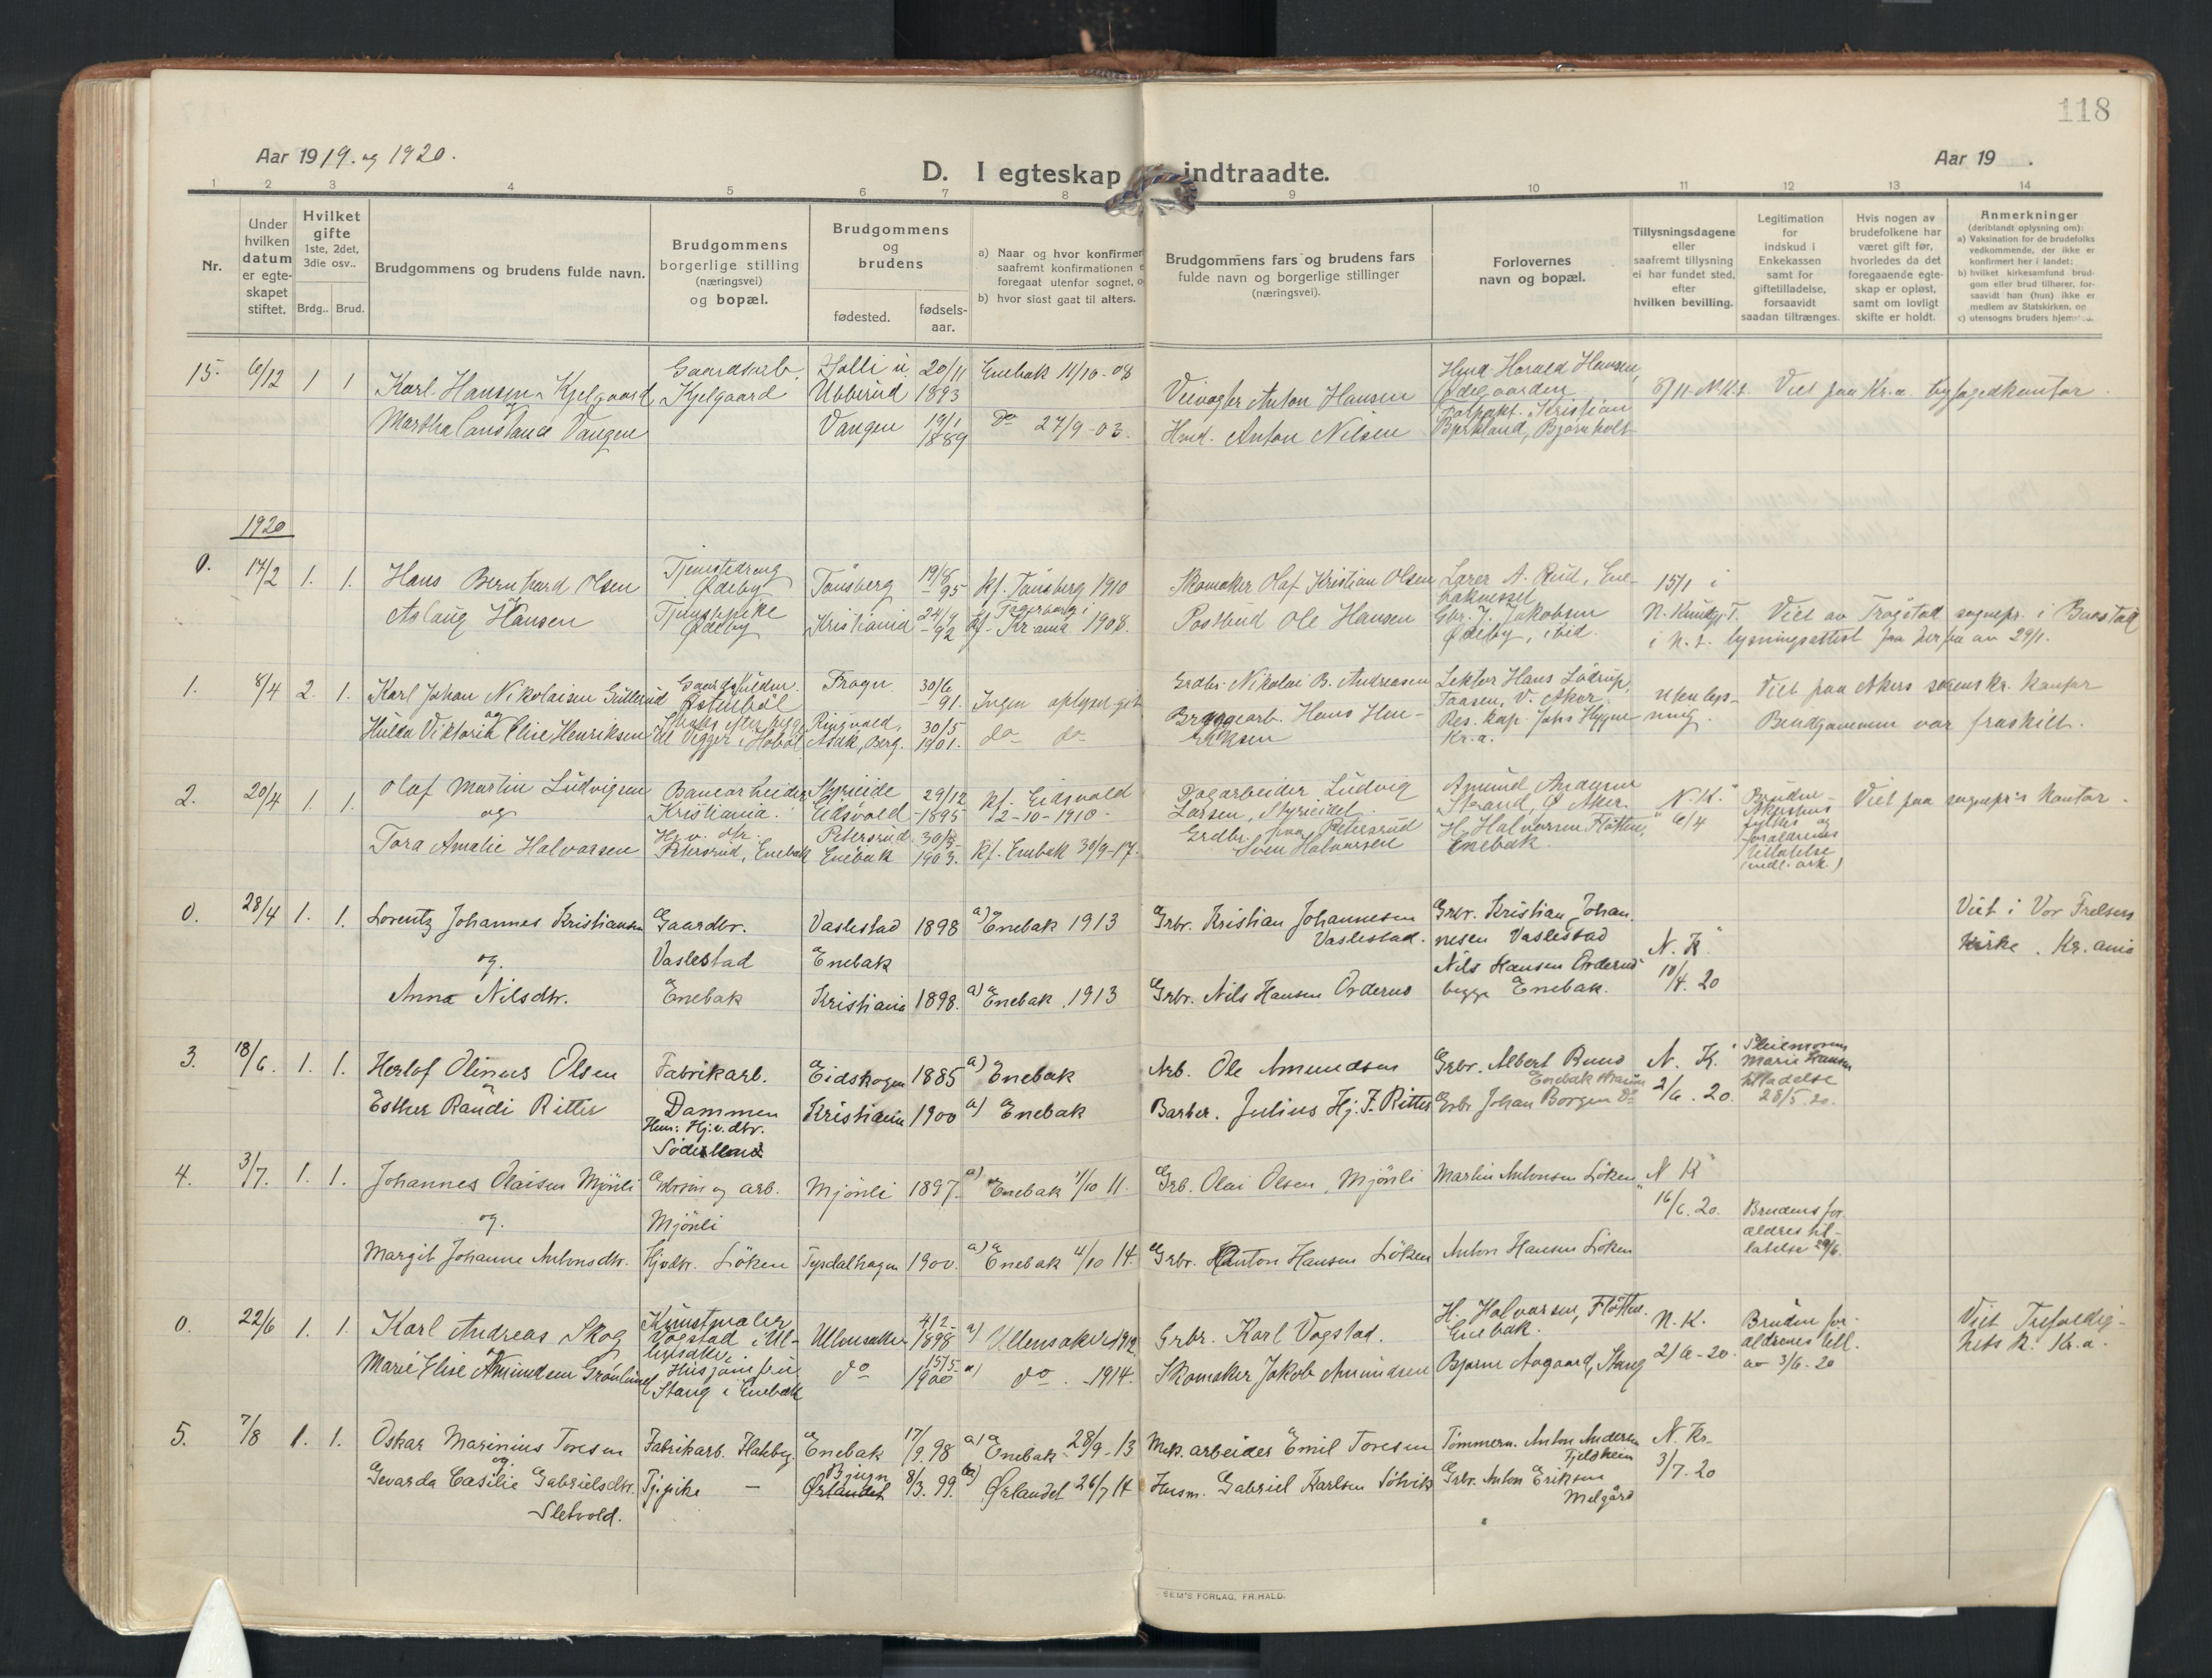 118
Aar 1919. og 1920.
D. I egteskap indtraadte.
Aar 19 .
1 2 3 4 5 6 7 8 9 10 11 12 13 14
Nr.
Under
hvilken
datum
er egte-
skapet
stiftet.
Hvilket
gifte
1ste, 2det,
3die osv..
Brdg.. Brud.
Brudgommens og brudens fulde navn.
Brudgommens
borgerlige stilling
(næringsvei)
og bopæl.
Brudgommens
og
brudens
fødested.
fødsels-
aar.
a) Naar og hvor konfirmer
saafremt konfirmationen e
foregaat utenfor sognet, o
b) hvor sidst gaat til alters.
Brudgommens fars og brudens fars
fulde navn og borgerlige stillinger
(næringsvei).
Forlovernes
navn og bopæl.
Tillysningsdagene
eller
saafremt tillysning
ei har fundet sted,
efter
hvilken bevilling.
Legitimation
for
indskud i
Enkekassen
samt for
giftetilladelse,
forsaavidt
saadan tiltrænges.
Hvis nogen av
brudefolkene har
været gift før,
hvorledes da det
foregaaende egte-
skap er opløst,
samt om lovligt
skifte er holdt.
Anmerkninger
(deriblandt oplysning om):
a) Vaksination for de brudefolks
vedkommende, der ikke er
konfirmert her i landet;
b) hvilket kirkesamfund brud-
gom eller brud tilhører, for-
saavidt han (hun) ikke er
medlem av Statskirken, og
c) utensogns bruders hjemsted.
15. 6/12 1 1 Karl Hansen Kjelgaard
Gaardsarb.
Kjelgaard
Ubberud 20/11
1893
Enebak 11/10-08
Veivogter Anton Hansen
Hmd. Harald Hansen,
Ødegaarden
Viet paa Kr.a. byfogedkontor.
Martha Constance Vangen Vangen 19/1
1889
do 27/9-03.
Hmd. Anton Nilsen
Kristian
Bjerkland, Bjørnholt
1920
0. 14/2 1. 1. Hans Bernhard Olsen
Tjenestedreng
Ødeby
Tønsberg 19/8
95
kf. Tønsberg 1910
Skomaker Olaf Kristian Olsen
Lærer A. Rud, Ene-
baknesset
15/1 i
og
Aslaug Hansen
Tjenestepike
Ødeby
Kristiania 24/9
92
kf. Fagerborg i
Kr.ania 1908.
Postbud Ole Hansen
Gbr. J. Jakobsen
Ødeby, ibid.
Viet av Trøgstad sognepr. i Baastad
lysningsattest fra herfra av 29/1.
1. 8/4 2. 1. Karl Johan Nikolaisen Gullerud
Østenbøl
Frogn 30/6
91.
Ingen oplysn. git
Grdbr. Nikolai B. Andreasen
Lektor Hans Lødrup,
Taasen, V. Aker.
Uten lys-
ning.
Viet paa Akers sogns kr. kontor
og
Hulda Viktoria Elise Henriksen
Vegger i Hobøl
Ringvold,
Asak, Berg. 30/5
1901.
do do
Bryggearb. Hans Hen-
riksen
Res. kap. Johs Hygen
Kr.a.
Brudgommen var fraskilt.
2. 20/4 1. 1. Olaf Martin Ludvigsen
Banearbeider
Kristiania.
Styrieide
Eidsvold 29/12
1895
kf. Eidsvold
2-10-1910-
Dagarbeider Ludvig
Larsen, Styrieidet.
Amund Andersen
Strand, Ø. Aker.
N.K.
6/4
Viet paa sognepr's kontor.
og
Tora Amalie Halvorsen
Hj. v. dtr.
Petersrud, Enebak
Petersrud
Enebak
1903.
kf. Enebak 30/9-17.
Grdbr. paa Petersrud
Sven Halvorsen
H. Halvorsen Fløtten,
Enebak.
forældrenes
tilladelse
0. 28/4 1. 1. Lorentz Johannes Kristiansen
Gaardbr.
Vaslestad
Enebak
Vaslestad
Enebak 1898
a) Enebak 1913
Grbr. Kristian Johannesen
Vaslestad.
Grbr. Kristian Johan
nesen Vaslestad
N. K.
Viet i Vor Frelsers
Kirke. Kr.ania
og.
Anna Nilsdtr. Kristiania 1898.
a) Enebak 1913
Grbr. Nils Hansen Orderud
Nils Hansen Orderud
begge Enebak.
18/4. 20
3. 18/6. 1. 1. Herlof Olinus Olsen
Fabrikarb.
Dammen
Eidskogen 1885
a) Enebak
Arb. Ole Amundsen
Grbr. Albert Rud
N. K.
2/6. 20.
Pleiemorens
Marie Hansen
tilladelse
28/5.20.
og
Esther Randi Ritter
Hj.v.dtr.
Kristiania 1900
a) Enebak
Barber. Julius Hj. F. Ritter
Grbr Johan Borgen Do
4. 3/7. 1. 1. Johannes Olaisen Mjönli
Gbrsøn og arb.
Mjönli
Mjönli 1897.
a) Enebak 1/10 11.
Grb. Olai Olsen, Mjönli
Martin Antonsen Löken
N K
16/6. 20.
Brudens for
ældres til-
latelse 29/6.
og.
Margit Johanne Antonsdtr.
Hjvdtr. Löken
1900.
a) Enebak 4/10 14.
Grbr. Anton Hansen Löken
Anton Hansen Löken
0. 22/6 1. 1. Karl Andreas Skog
Kunstmaler
Vogstad i Ul-
lensaker
Ullensaker 4/2-
1898
a) Ullensaker 1912
Grbr. Karl Vogstad.
H. Halvorsen, Fløtten.
Enebak.
N.K.
2/6-20.
Brudens for-
ældrenes till.
av 3/6-20
Viet Trefoldig-
hets k. Kr.a.
og
Marie Elise Amundsen Grønlund
Stang i Enebak
do 15/5
1900
a) do. 1914.
Skomaker Jakob Amundsen
Bjarne Aagaard, Stang
5. 7/8 1. 1. Oskar Marinius Toresen
Fabrikarb. Flateby.
Enebak 17/9. 98
a) Enebak 28/9-13
Mek. arbeider Emil Toresen
Tømmerm. Anton Andersen
Fjeldheim
N. Kr.
3/7. 20
og.
Gevarda Casilie Gabrielsdtr.
Sletvold.
Tj.pike —
Bjugn
Ørlandet 8/3. 99.
Ørlandet 26/7 14
Husm. Gabriel Karlsen Sølvik
Grbr. Anton Eriksen
Melgård
SEM'S FORLAG, FR.HALD.